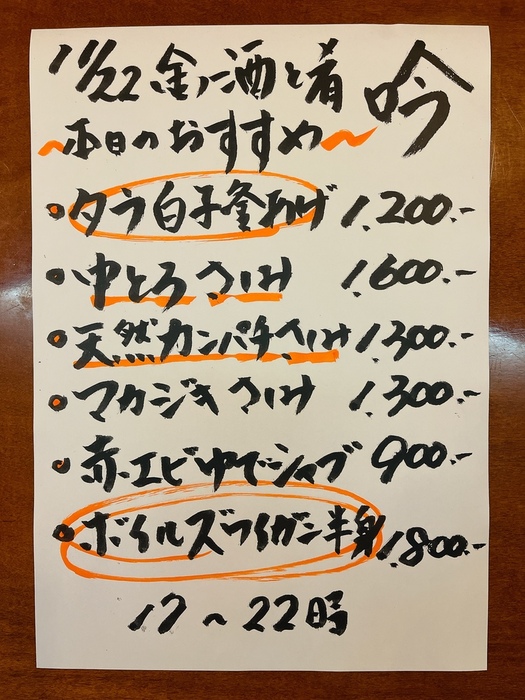 11/22 金 酒と肴 吟
~本日のおすすめ~
タラ白子釜あげ 1,200.-
中とろさしみ 1,600.-
天然カンパチさしみ 1,300.-
マカジキさしみ 1,300.-
赤エビゆでシャブ 900.-
ボイルズワイガニ半身 1,800.-
17~22時